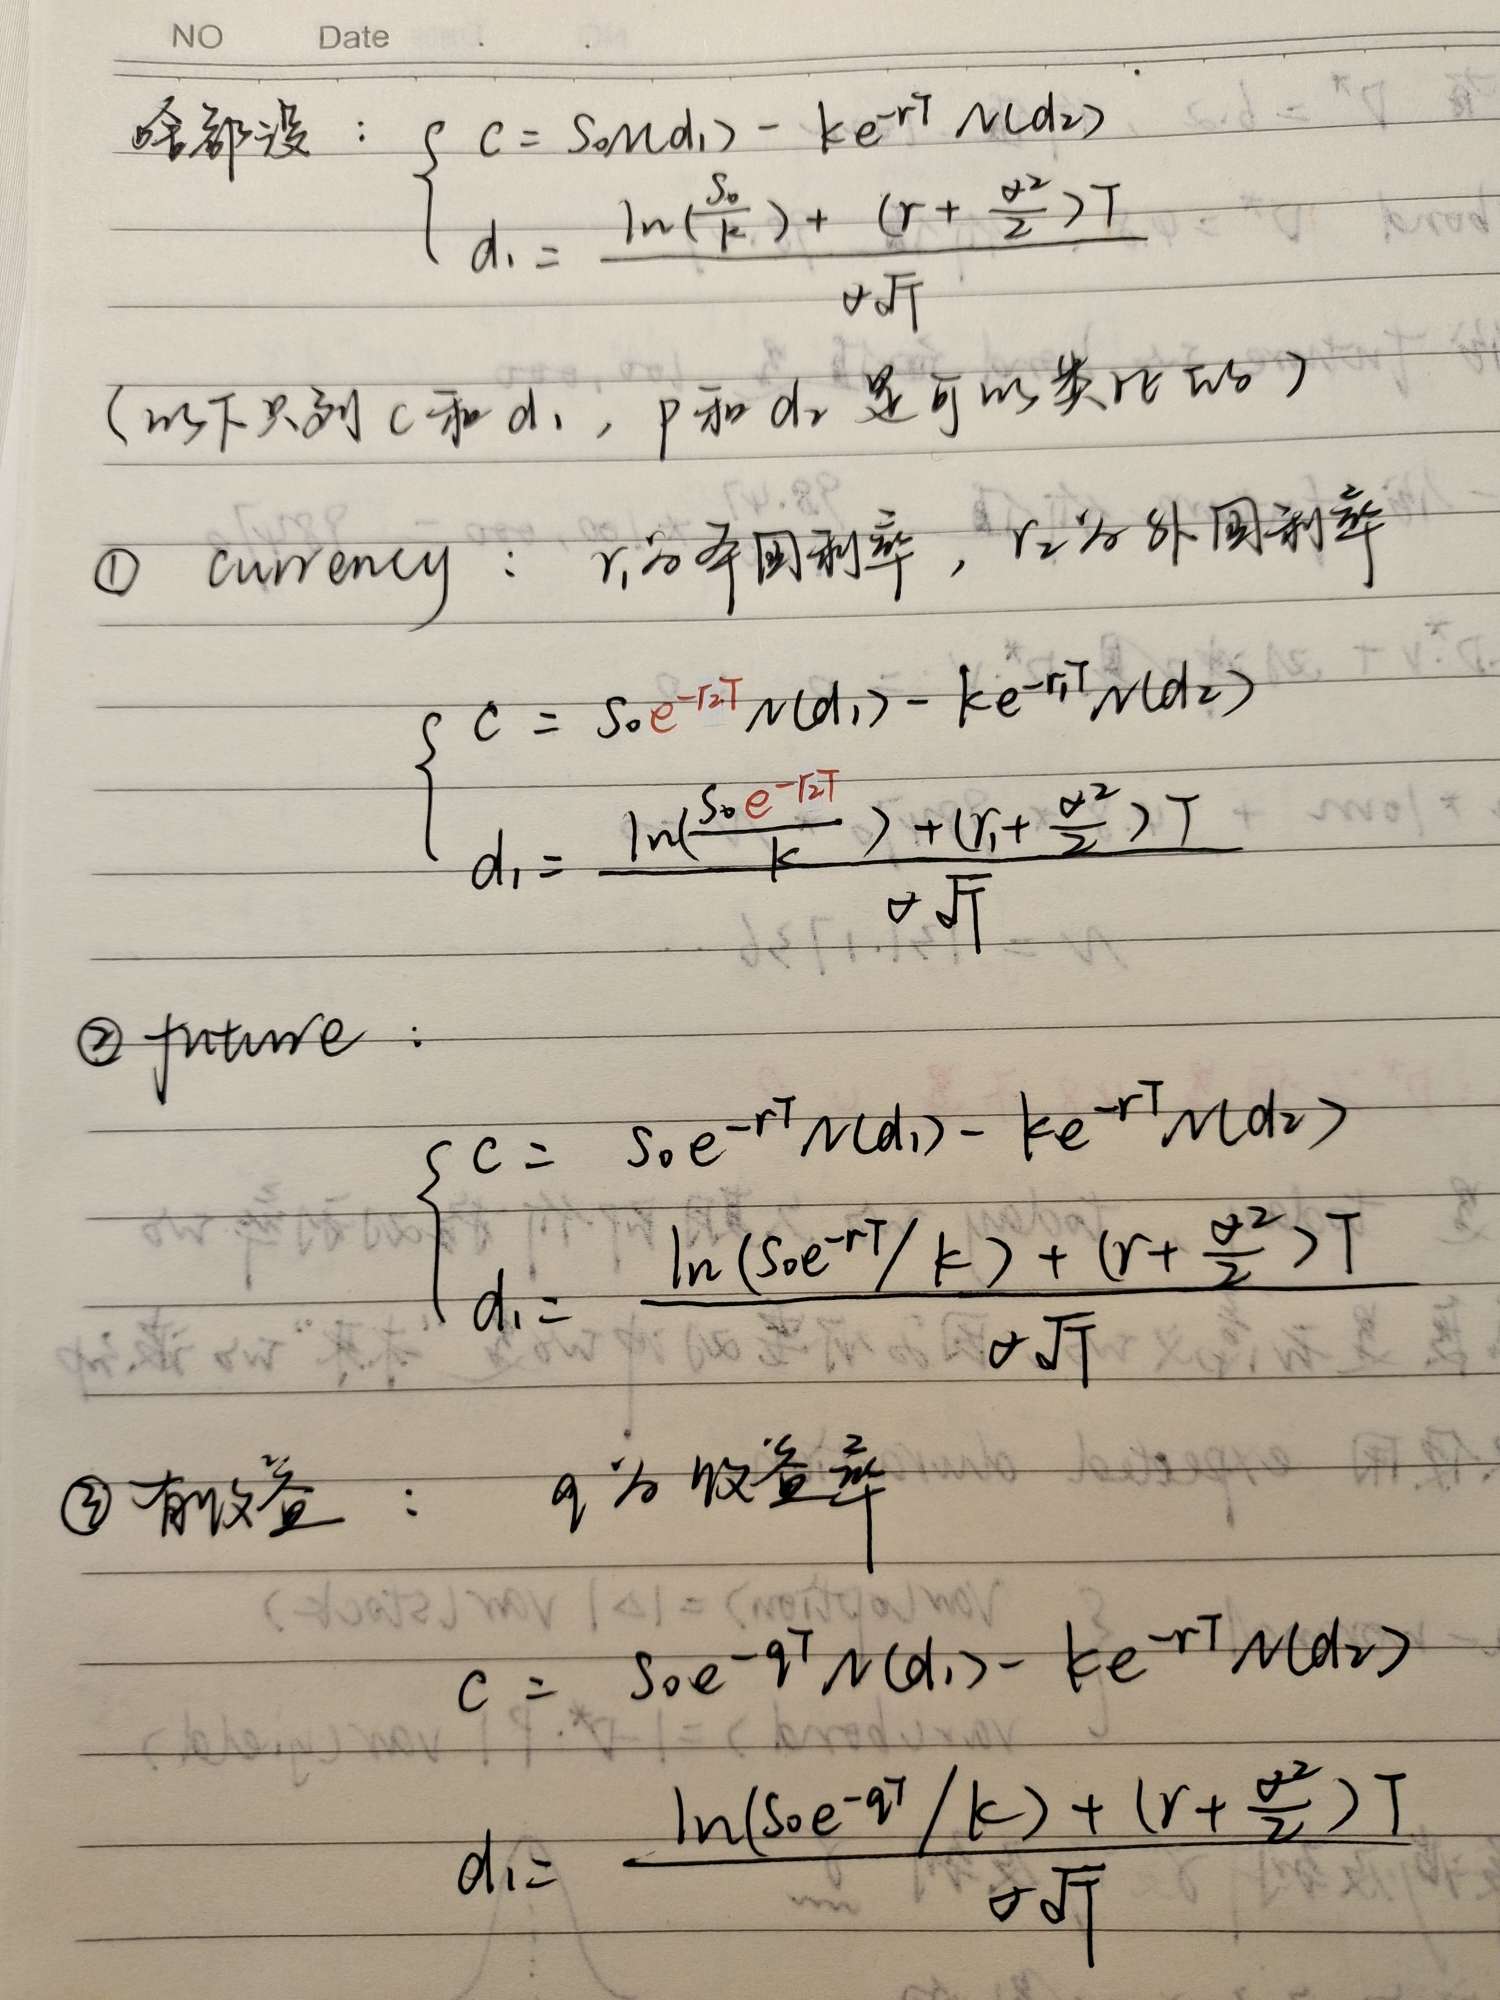 NO Date
啥都没：{ c = S₀N(d₁) - Ke^{-rT} N(d₂)
d₁ = \frac{ln(\frac{S₀}{K}) + (r + \frac{σ²}{2})T}{σ√T}
（以下只列 c 和 d₁，p 和 d₂ 是可以类比的）
① currency：r₁为本国利率，r₂为外国利率
{ c = S₀e^{-r₂T} N(d₁) - Ke^{-r₁T} N(d₂)
d₁ = \frac{ln(\frac{S₀e^{-r₂T}}{K}) + (r₁ + \frac{σ²}{2})T}{σ√T}
② future：
{ c = S₀e^{-rT} N(d₁) - Ke^{-rT} N(d₂)
d₁ = \frac{ln(S₀e^{-rT}/K) + (r + \frac{σ²}{2})T}{σ√T}
③ 有收益：q为收益率
c = S₀e^{-qT} N(d₁) - Ke^{-rT} N(d₂)
d₁ = \frac{ln(S₀e^{-qT}/K) + (r + \frac{σ²}{2})T}{σ√T}